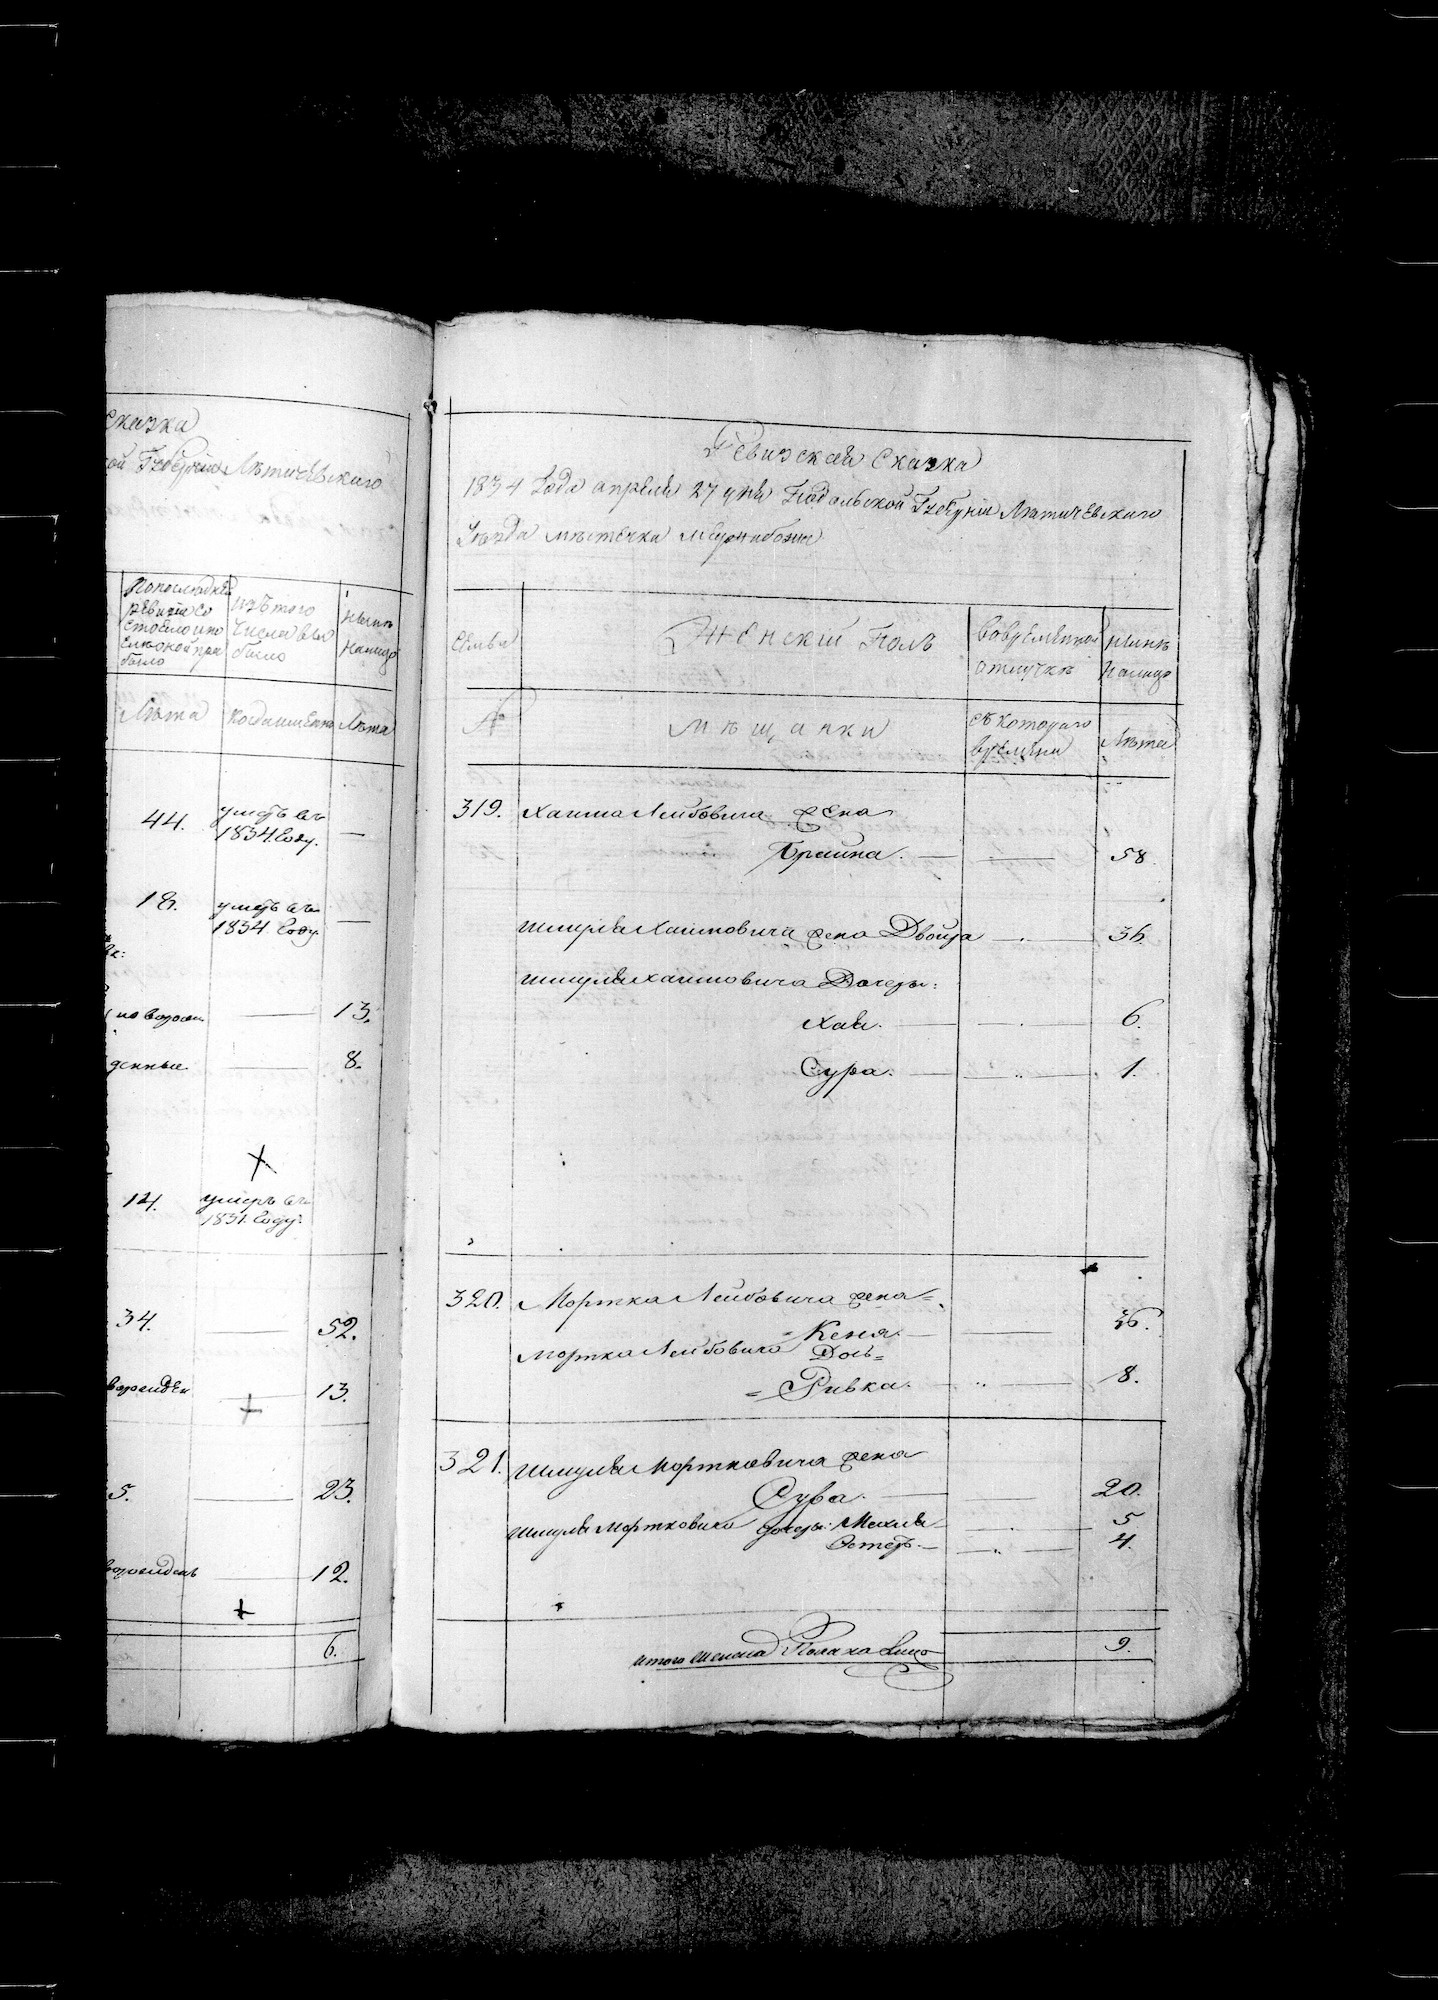 Сказка
ой Губернии Лѣтичевскаго
Попоследней
ревизии со
стояло и по
было
изъ того
числа вы
было
нынѣ
налицо
Лѣта
когда именно
Лѣта
44.
умеръ въ
1834 Году.
18.
умеръ въ
1834 Году
13.
денные
8.
14.
умеръ въ
1831 Году.
34.
52.
13.
5.
23.
12.
6.
Ревизская Сказка
1834 Года апреля 27 дня Подольской Губернии Лѣтичевскаго
Уѣзда мѣстечка Меджибожа
Семьи
Женский Полъ
Вовременной
отлучкѣ
нынѣ
налицо
№
мѣщанки
съ котораго
времени
Лѣта
319.
Хаима Лейбовича жена
Брайна.
58.
Шмуля Хаимовича жена Двойра
36.
Шмуля Хаимовича Дочеры:
Хая.
6.
Сура.
1.
320.
Мортка Лейбовича жена=
Кеня.
36.
Мортка Лейбовича Дочь=
=Ривка.
8.
321.
Шмуля Мортковича жена
Сура.
20.
Шмуля Мортковича дочеры: Махля
5
Эстеръ.
4.
итого женска Пола на лицо
9.